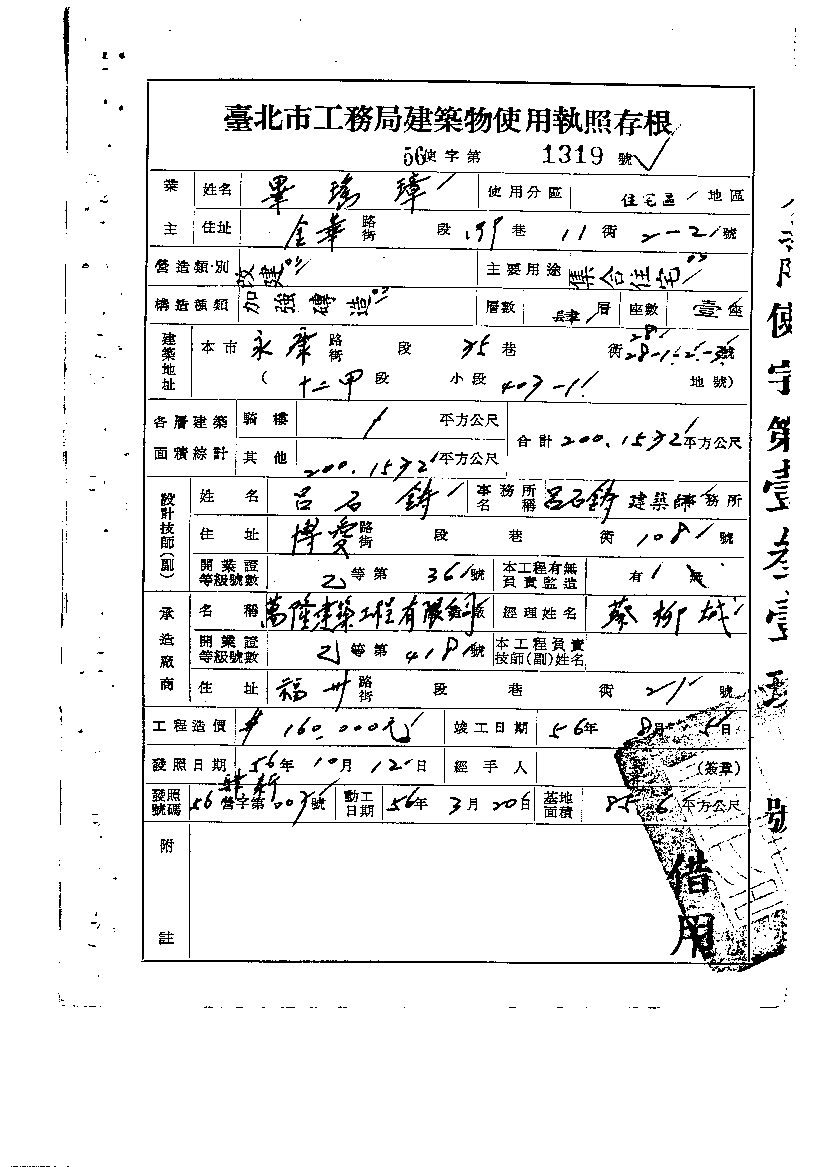 臺北市工務局建築物使用執照存根
56使字第 1319 號
業主 姓名 畢 璋 使用分區 住宅區 地區
住址 金華 路街 段 199 巷 11 衖 2-2 號
營造類別 改建 主要用途 集合住宅
構造種類 加強磚造 層數 肆 層 座數 壹 座
建築地址 本市 永康 路街 段 35 巷 衖 28 28-1 號
( 十二甲 段 小段 403-1 地號)
各層建築面積綜計 騎樓 平方公尺 合計 200.1532 平方公尺
其他 200.1532 平方公尺
設計技師(副) 姓名 呂石鑄 事務所名稱 呂石鑄 建築師事務所
住址 博愛 路街 段 巷 衖 108 號
開業證等級號數 乙等第 361 號 本工程有無負責監造 有 無
承造廠商 名稱 萬隆建築工程有限公司 經理姓名 蔡柳城
開業證等級號數 乙等第 4181 號 本工程負責技師(副)姓名
住址 福州 路街 段 巷 衖 21 號
工程造價 # 160,000元 竣工日期 56年 8月 5日
發照日期 56年 10月 12日 經手人 (簽章)
發照號碼 56 營字第 003 號 動工日期 56年 3月 20日 基地面積 85.6 平方公尺
附註
借用
使字第壹叁壹 號